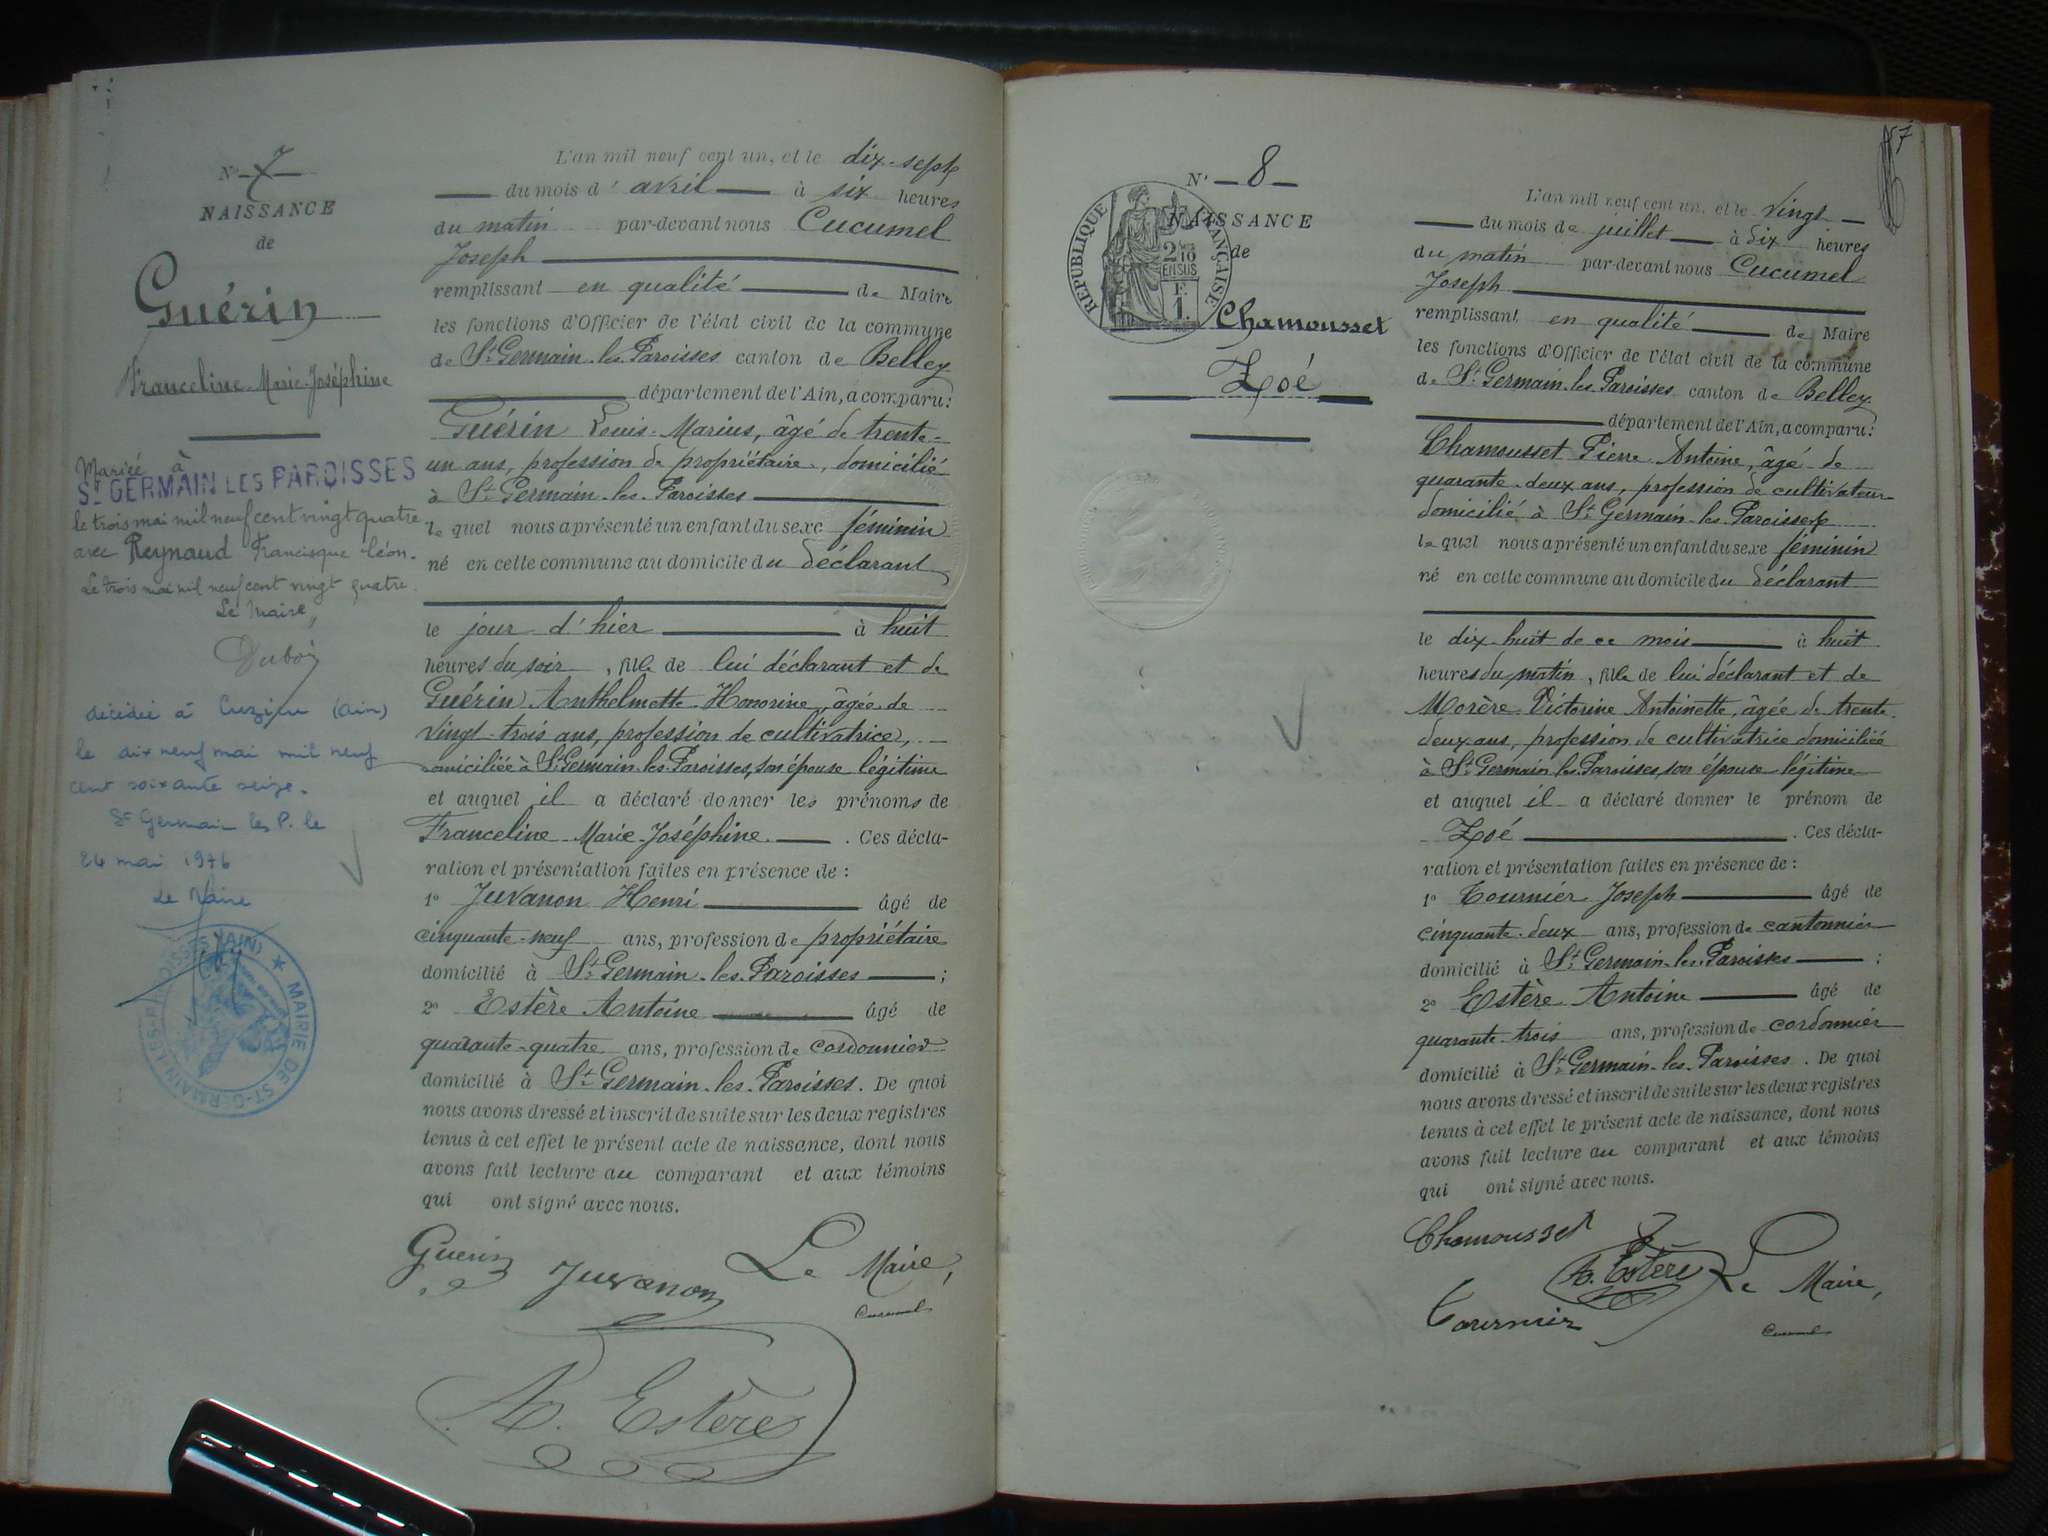 N° 7
NAISSANCE
de
Guérin
Franceline-Marie-Joséphine
Mariée à
ST GERMAIN LES PAROISSES
le trois mai mil neuf cent vingt quatre
avec Reynaud Francisque Léon.
Le trois mai mil neuf cent vingt quatre.
Le Maire,
Duboi
décédée à Cuzieu (Ain)
le dix neuf mai mil neuf
cent soixante seize.
St Germain les P. le
24 mai 1976
Le Maire
MAIRIE DE ST-GERMAIN-LES-PAROISSES (AIN)
L'an mil neuf cent un, et le dix-sept
du mois d'avril à six heures
du matin par-devant nous Cucumel
Joseph
remplissant en qualité de Maire
les fonctions d'Officier de l'état civil de la commune
de St Germain-les-Paroisses canton de Belley
département de l'Ain, a comparu:
Guérin Louis-Marius, âgé de trente-
un ans, profession de propriétaire, domicilié
à St Germain-les-Paroisses
le quel nous a présenté un enfant du sexe féminin
né en cette commune au domicile du déclarant
le jour d'hier à huit
heures du soir, fille de lui déclarant et de
Guérin Anthelmette Honorine, âgée de
vingt-trois ans, profession de cultivatrice,
domiciliée à St Germain-les-Paroisses, son épouse légitime
et auquel il a déclaré donner les prénoms de
Franceline-Marie-Joséphine. Ces décla-
ration et présentation faites en présence de :
1° Juvanon Henri âgé de
cinquante-neuf ans, profession de propriétaire
domicilié à St Germain-les-Paroisses ;
2° Estère Antoine âgé de
quarante-quatre ans, profession de cordonnier
domicilié à St Germain-les-Paroisses. De quoi
nous avons dressé et inscrit de suite sur les deux registres
tenus à cet effet le présent acte de naissance, dont nous
avons fait lecture au comparant et aux témoins
qui ont signé avec nous.
Guerin Juvanon Le Maire,
Cucumel
A. Estère
7
N° 8
NAISSANCE
de
REPUBLIQUE FRANÇAISE
2/10 EN SUS
F. 1.
Chamousset
Zoé
L'an mil neuf cent un, et le vingt
du mois de juillet à dix heures
du matin par-devant nous Cucumel
Joseph
remplissant en qualité de Maire
les fonctions d'Officier de l'état civil de la commune
de St Germain-les-Paroisses canton de Belley
département de l'Ain, a comparu:
Chamousset Pierre-Antoine, âgé de
quarante-deux ans, profession de cultivateur
domicilié à St Germain-les-Paroisses
le quel nous a présenté un enfant du sexe féminin
né en cette commune au domicile du déclarant
le dix-huit de ce mois à huit
heures du matin, fille de lui déclarant et de
Morère Victorine Antoinette, âgée de trente
deux ans, profession de cultivatrice domiciliée
à St Germain-les-Paroisses, son épouse légitime
et auquel il a déclaré donner le prénom de
Zoé. Ces décla-
ration et présentation faites en présence de :
1° Tournier Joseph âgé de
cinquante-deux ans, profession de cantonnier
domicilié à St Germain-les-Paroisses ;
2° Estère Antoine âgé de
quarante-trois ans, profession de cordonnier
domicilié à St Germain-les-Paroisses. De quoi
nous avons dressé et inscrit de suite sur les deux registres
tenus à cet effet le présent acte de naissance, dont nous
avons fait lecture au comparant et aux témoins
qui ont signé avec nous.
Chamousset
A. Estère Le Maire,
Tournier
Cucumel